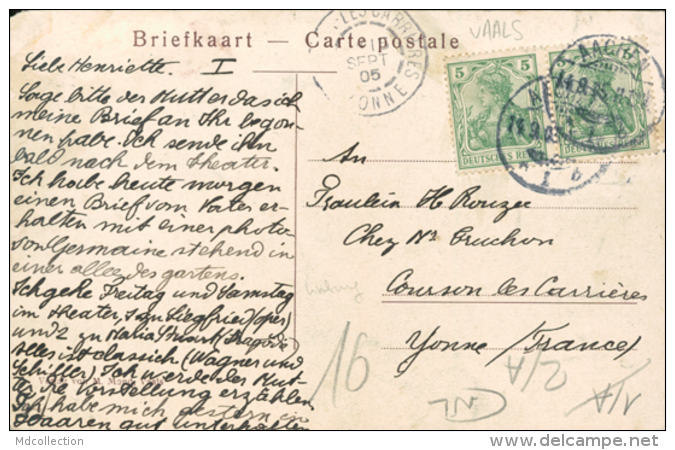 Briefkaart — Carte postale
VAALS
Liebe Henriette. I
Sage bitte der Mutter das ich
meine Brief an Ihr begon-
nen habe. Ich sende ihn
bald nach dem Theater.
Ich habe heute morgen
einen Brief vom Vater er-
halten mit einer photo
von Germaine stehend in
einer allee des gartens.
Ich gehe Freitag und Samstag
im Theater, 1 zu Siegfried (oper)
und 2 zu Maria Stuart (Tragödie)
Alles ist classich (Wagner und
Schiller) Ich werde der Mut-
ter die Vorstellung erzählen
Ich habe mich gestern in
Haaren gut unterhalten
LES CARRIERES
SEPT
05
YONNE
5
DEUTSCHES REICH
AACHEN
14.9.05
An
Fraulein H Rouzee
Chez Mr Cruchon
Courson les Carrières
Yonne (France)
16
A/2
Mdcollection
delcampe.net